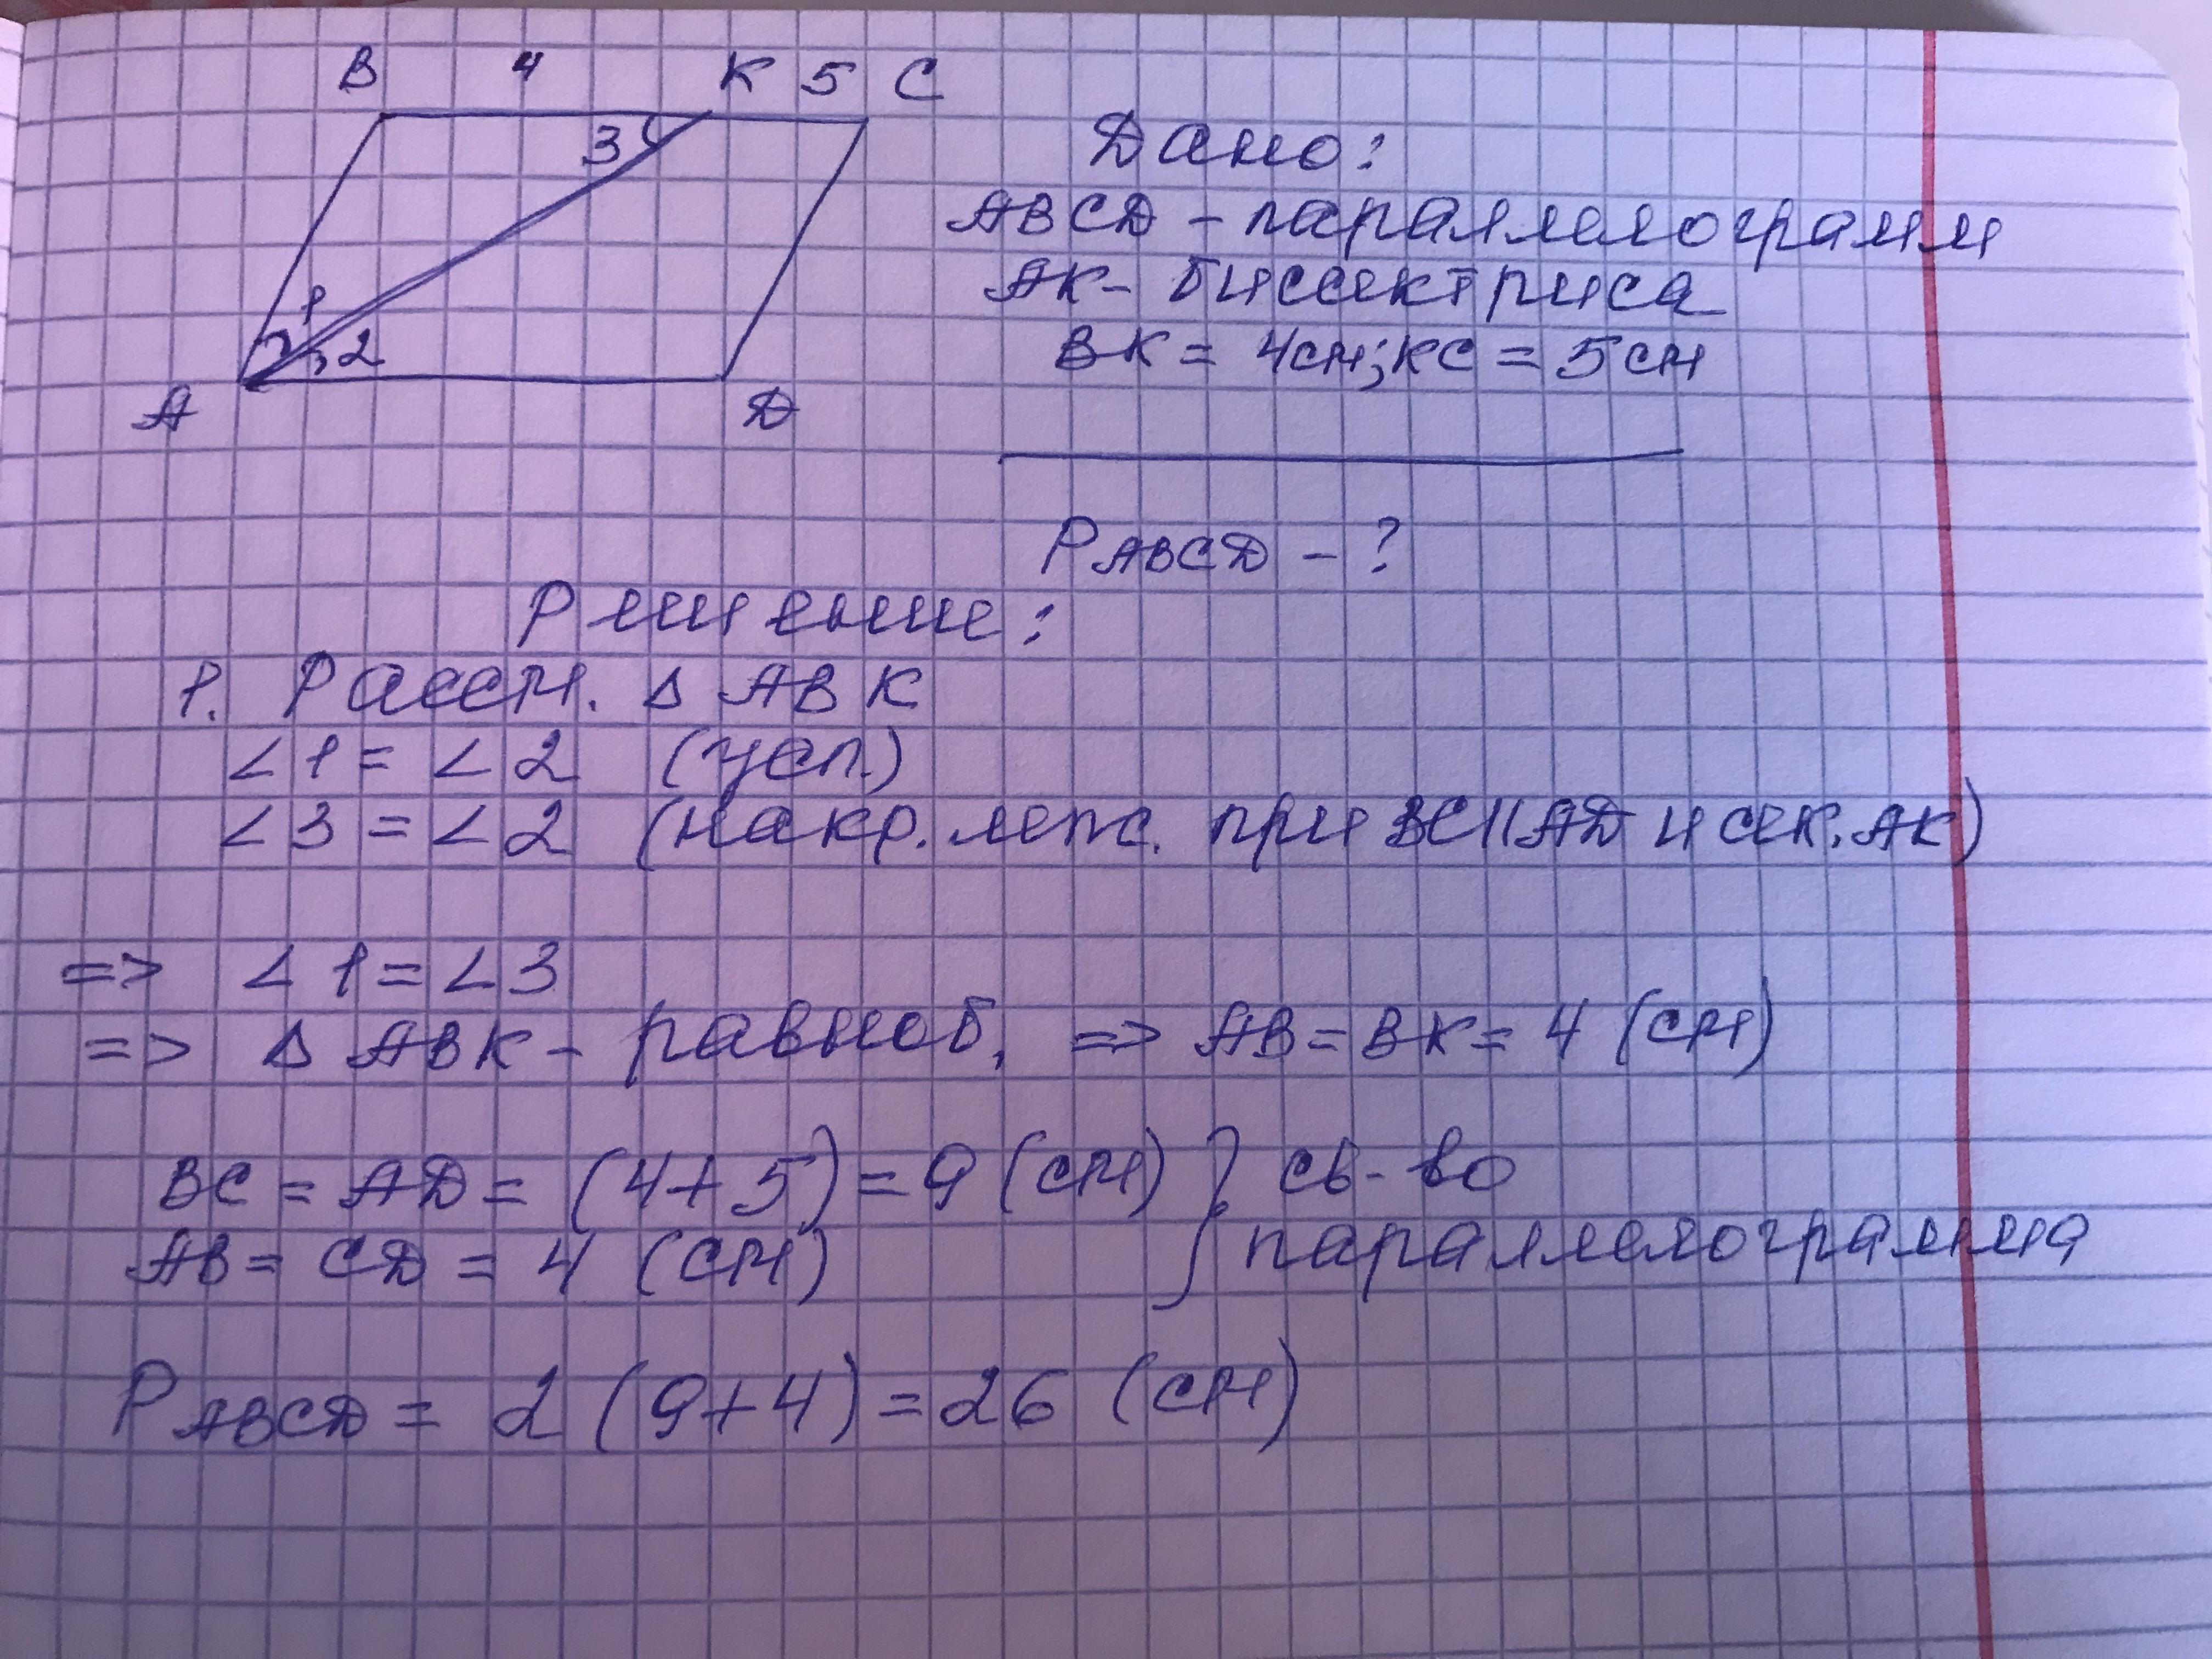 B 4 K 5 C
3
1
2
A D
Дано:
ABCD - параллелограмм
AK - биссектриса
BK = 4см; KC = 5см
PABCD - ?
Решение:
1. Рассм. Δ ABK
∠1 = ∠2 (усл.)
∠3 = ∠2 (накр. леж. при BC || AD и сек. AK)
=> ∠1 = ∠3
=> Δ ABK - равноб. => AB = BK = 4 (см)
BC = AD = (4+5) = 9 (см) } св-во
AB = CD = 4 (см) параллелограмма
PABCD = 2 (9+4) = 26 (см)